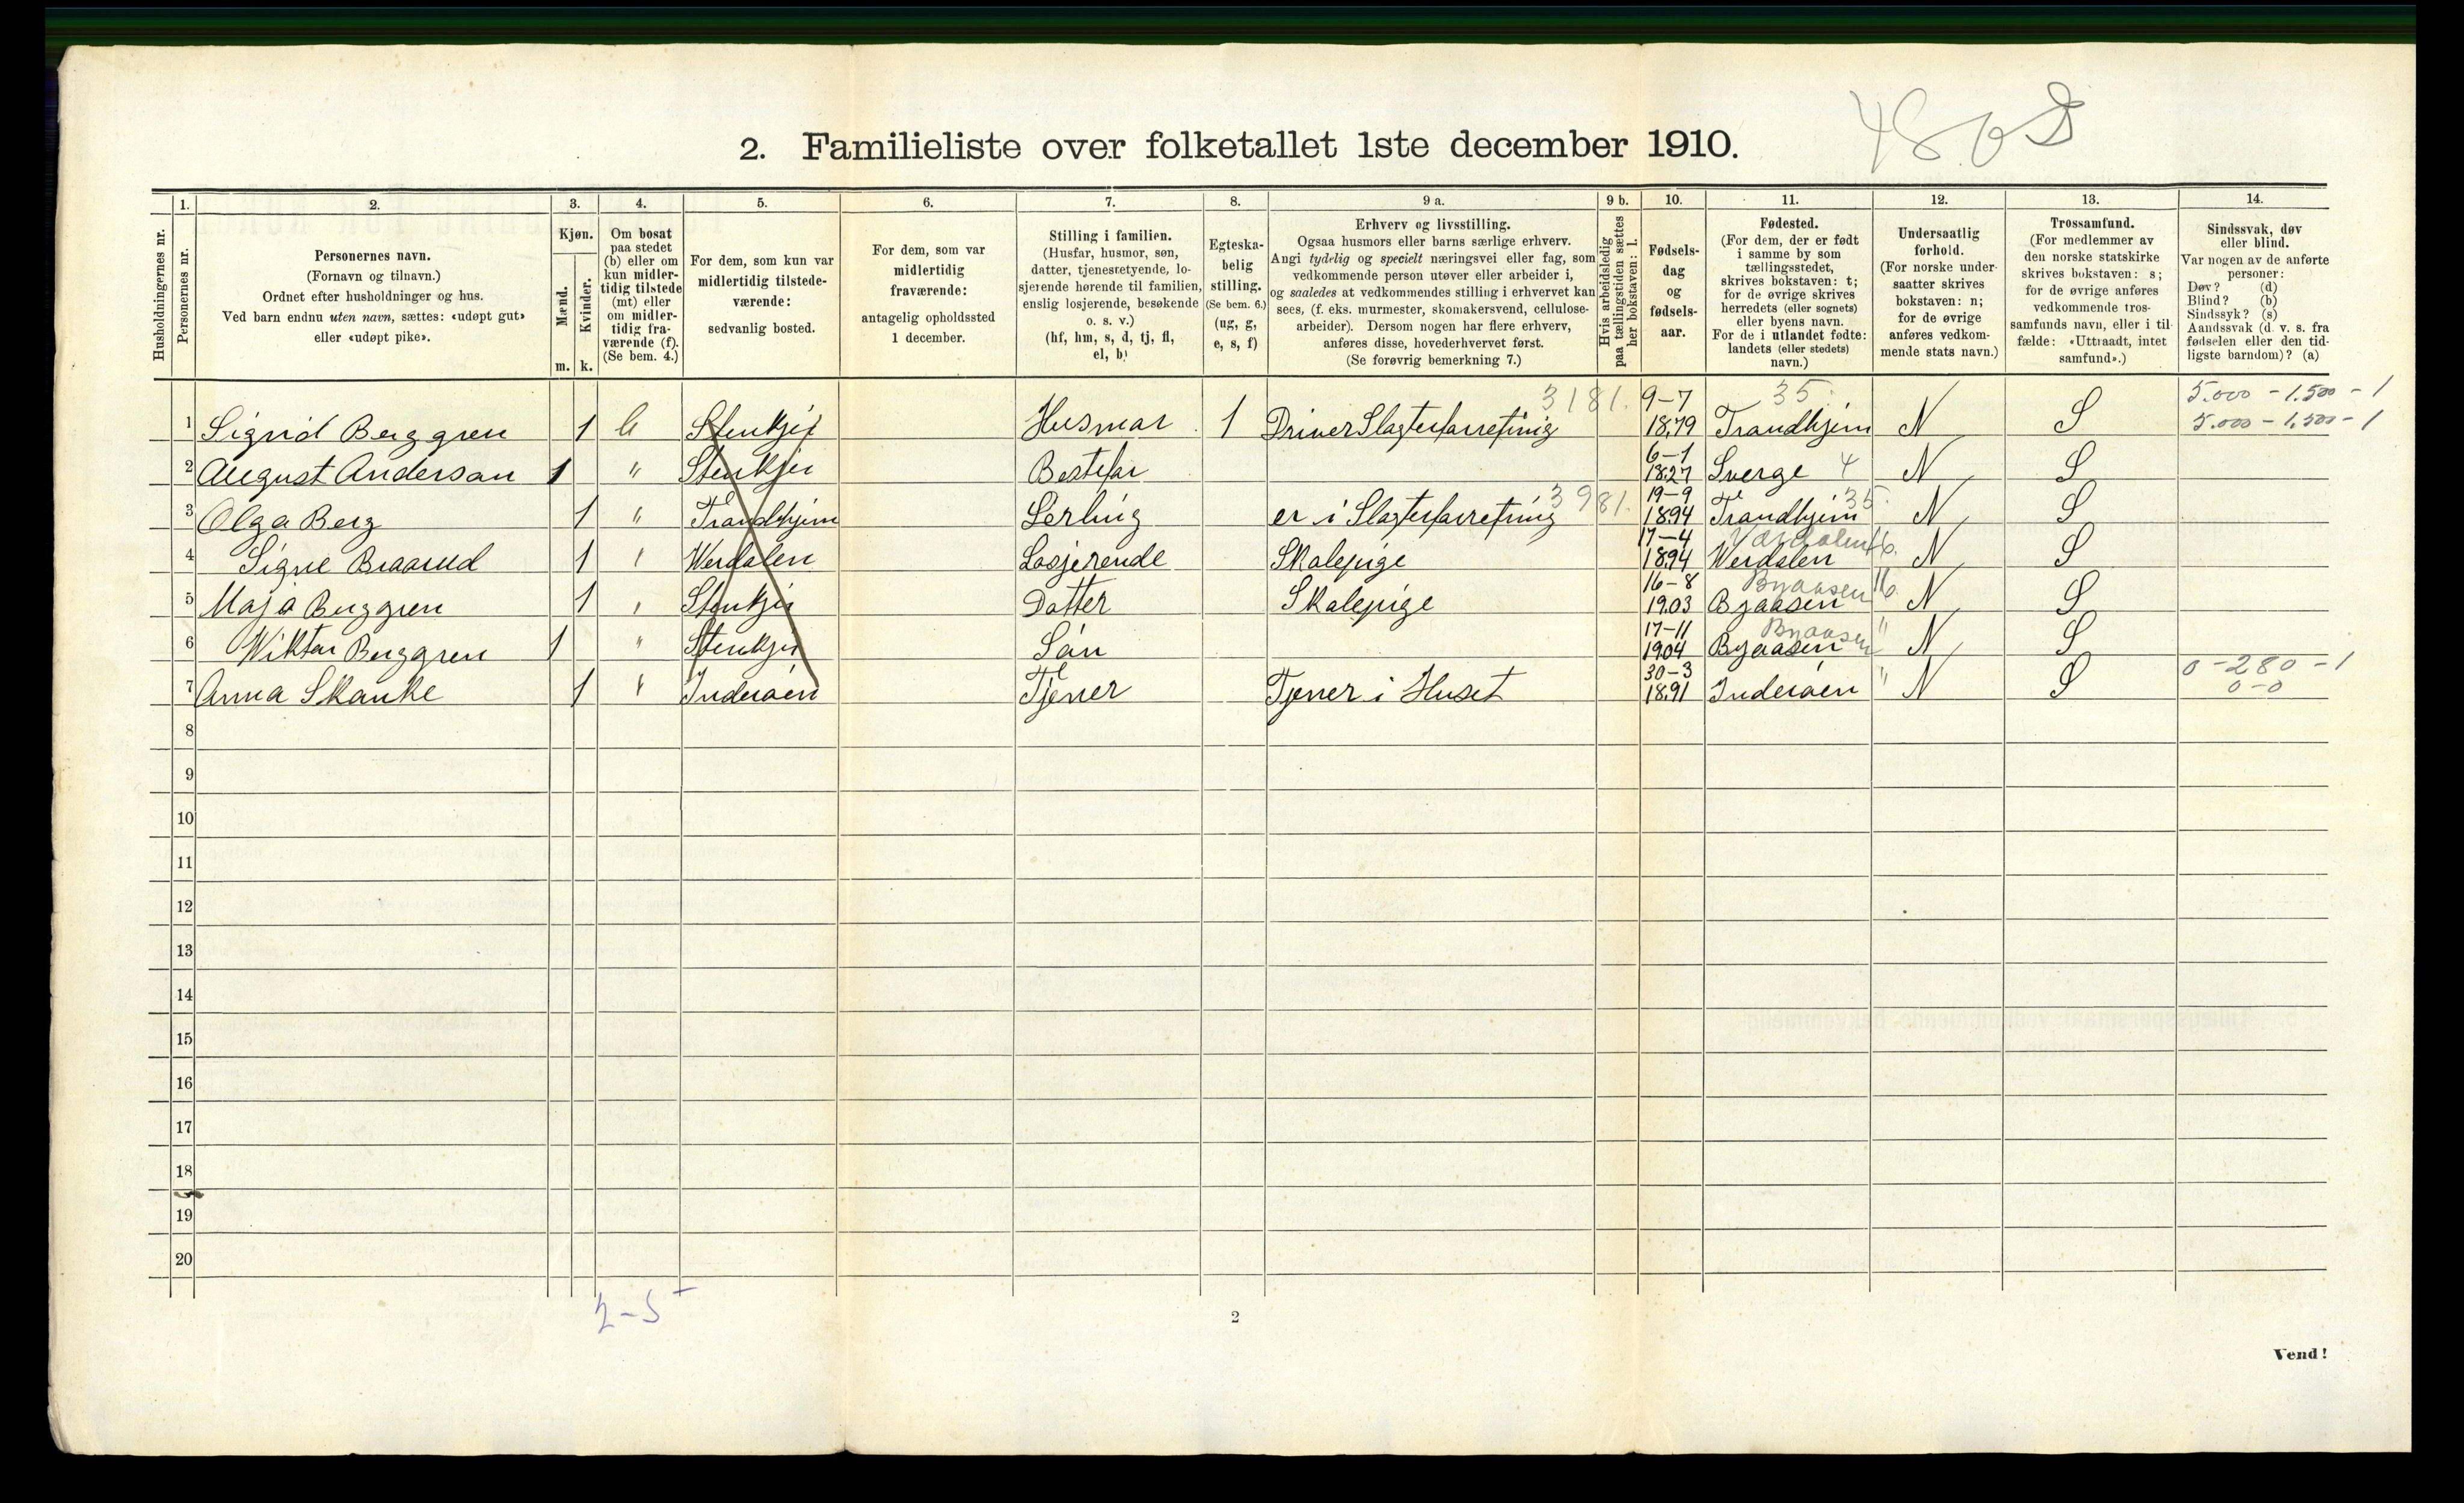 480 D
2. Familieliste over folketallet 1ste december 1910.
Husholdningernes nr.
1. Personernes nr.
2. Personernes navn.
(Fornavn og tilnavn.)
Ordnet efter husholdninger og hus.
Ved barn endnu uten navn, sættes: «udøpt gut»
eller «udøpt pike».
3. Kjøn.
Mænd. Kvinder.
m. k.
4. Om bosat
paa stedet
(b) eller om
kun midler-
tidig tilstede
(mt) eller
om midler-
tidig fra-
værende (f).
(Se bem. 4.)
5. For dem, som kun var
midlertidig tilstede-
værende:
sedvanlig bosted.
6. For dem, som var
midlertidig
fraværende:
antagelig opholdssted
1 december.
7. Stilling i familien.
(Husfar, husmor, søn,
datter, tjenestetyende, lo-
sjerende hørende til familien,
enslig losjerende, besøkende
o. s. v.)
(hf, hm, s, d, tj, fl,
el, b)
8. Egteska-
belig
stilling.
(Se bem. 6.)
(ug, g,
e, s, f)
9 a. Erhverv og livsstilling.
Ogsaa husmors eller barns særlige erhverv.
Angi tydelig og specielt næringsvei eller fag, som
vedkommende person utøver eller arbeider i,
og saaledes at vedkommendes stilling i erhvervet kan
sees, (f. eks. murmester, skomakersvend, cellulose-
arbeider). Dersom nogen har flere erhverv,
anføres disse, hovederhvervet først.
(Se forøvrig bemerkning 7.)
9 b. Hvis arbeidsledig
paa tællingstiden sættes
her bokstaven: l.
10. Fødsels-
dag
og
fødsels-
aar.
11. Fødested.
(For dem, der er født
i samme by som
tællingsstedet,
skrives bokstaven: t;
for de øvrige skrives
herredets (eller sognets)
eller byens navn.
For de i utlandet fødte:
landets (eller stedets)
navn.)
12. Undersaatlig
forhold.
(For norske under-
saatter skrives
bokstaven: n;
for de øvrige
anføres vedkom-
mende stats navn.)
13. Trossamfund.
(For medlemmer av
den norske statskirke
skrives bokstaven: s;
for de øvrige anføres
vedkommende tros-
samfunds navn, eller i til-
fælde: «Uttraadt, intet
samfund».)
14. Sindssvak, døv
eller blind.
Var nogen av de anførte
personer:
Døv? (d)
Blind? (b)
Sindssyk? (s)
Aandssvak (d. v. s. fra
fødselen eller den tid-
ligste barndom)? (a)
3181. 9-7 35. 5.000 - 1.500 - 1
1 Sigrid Berggren 1 b Stenkjer Husmor 1 Driver Slagterforretning 1879 Trondhjem N S 5.000 - 1,500 - 1
6-1
2 August Anderson 1 " Stenkjer Bestefar 1827 Sverge 4 N S
3981. 19-9 35.
3 Olga Berg 1 " Trondhjem Lerling er i Slagterforretning 1894 Trondhjem N S
17-4 Værdalen 16.
4 Signe Braarud 1 " Werdalen Losjerende Skolepige 1894 Werdalen N S
16-8 Byaasen 16.
5 Maja Berggren 1 " Stenkjer Datter Skolepige 1903 Byaasen N S
17-11 Byaasen "
6 Wiktor Berggren 1 " Stenkjer Søn 1904 Byaasen N S
30-3 0 - 280 - 1
7 Anna Skanke 1 " Inderøen Tjener Tjener i Huset 1891 Inderøen " N S 0-0
8
9
10
11
12
13
14
15
16
17
18
19
20
2-5
2
Vend!